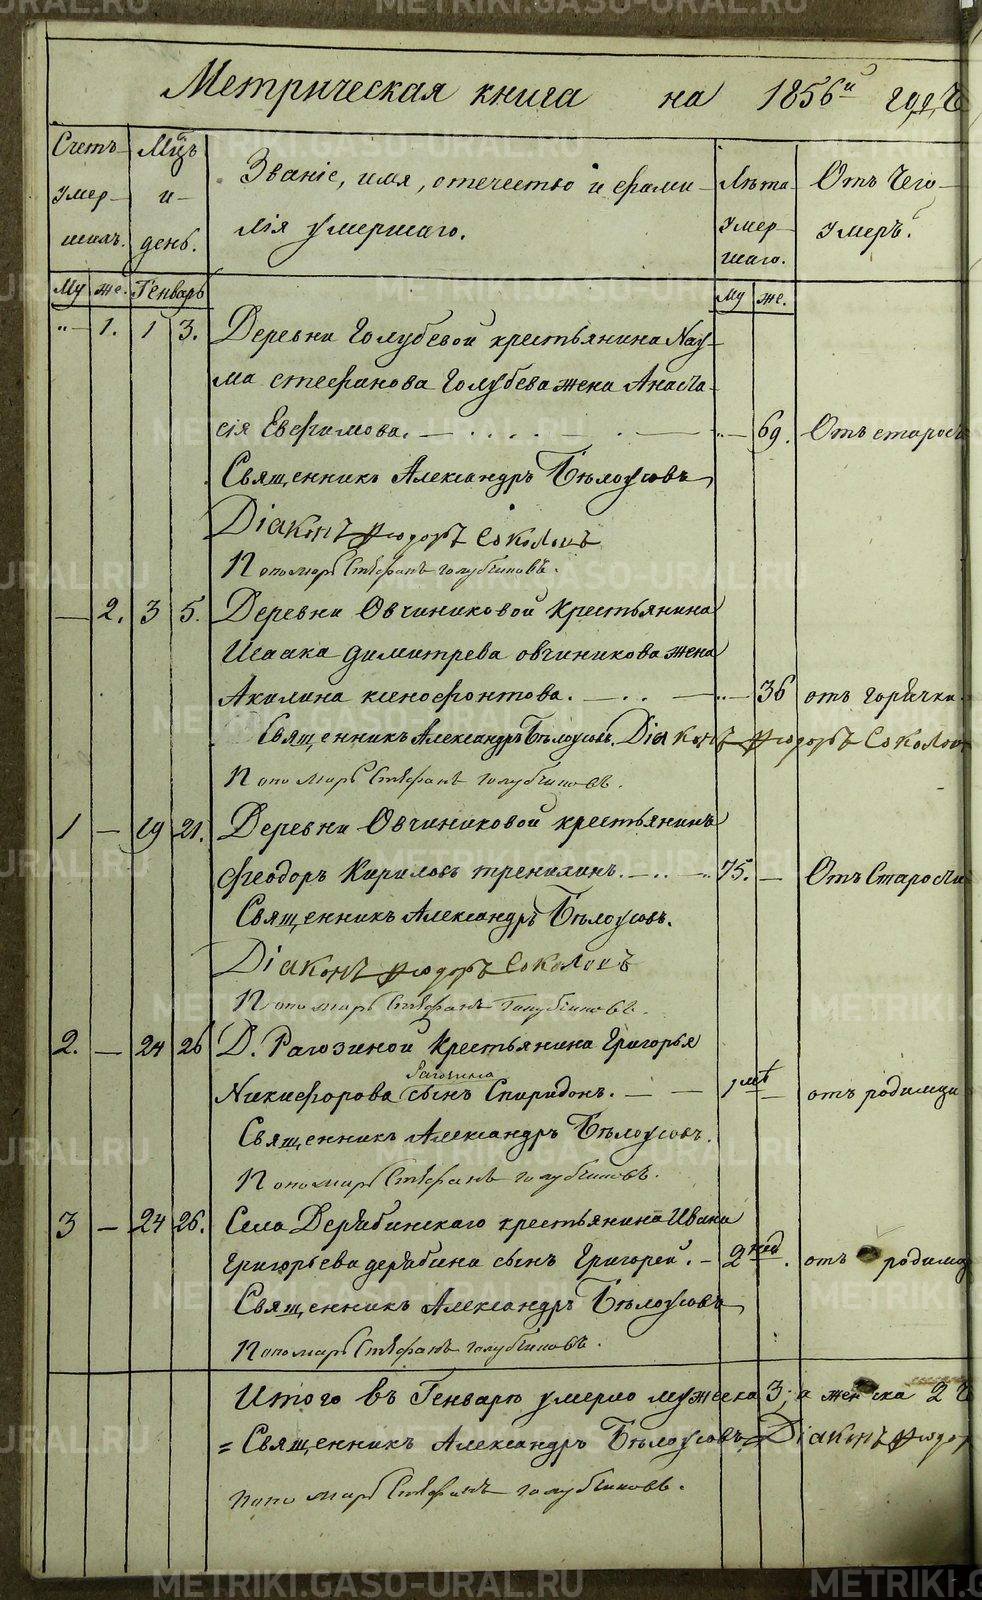 Метрическая книга на 1856й годъ
Счетъ умер- шихъ.
Мцъ и день.
Званіе, имя, отечество и фами-
лія умершаго.
Лѣта умер- шаго.
Отъ чего умеръ.
Му же. Генварь Му же.
"- 1. 1 3. Деревни Голубевой крестьянина Нау-
ма Стефанова Голубева жена Анаста-
сія Евфимова. "- 69. Отъ старос
Священникъ Александръ Бѣлоусовъ
Діаконъ Ѳеодоръ Соколовъ
Пономарь Стефанъ Голубчиковъ.
— 2. 3 5. Деревни Овчиниковой крестьянина
Исаака Димитрева Овчиникова жена
Акилина Ксенофонтова. "- 36 отъ горячки.
Священникъ Александръ Бѣлоусовъ. Діаконъ Ѳеодоръ Соколов
Пономарь Стефанъ Голубчиковъ.
1 — 19 21. Деревни Овчиниковой крестьянинъ
Феодоръ Кириловъ Тренихинъ. 75. — Отъ старости
Священникъ Александръ Бѣлоусовъ.
Діаконъ Ѳеодоръ Соколовъ
Пономарь Стефанъ Голубчиковъ.
2. — 24 26 Д. Рагозиной крестьянина Григорья
Рагозина
Никифорова сынъ Спиридонъ. 1 лѣт — отъ родимца
Священникъ Александръ Бѣлоусовъ.
Пономарь Стефанъ Голубчиковъ.
3 — 24 26. Села Дерябинскаго крестьянина Ивана
Григорьева Дерябина сынъ Григорей. 2 нед. отъ родимц
Священникъ Александръ Бѣлоусовъ
Пономарь Стефанъ Голубчиковъ.
Итого въ Генварѣ умерло мужеска 3; а женска 2
= Священникъ Александръ Бѣлоусовъ Діаконъ Ѳеодор
Пономарь Стефанъ Голубчиковъ.
METRIKI.GASO-URAL.RU